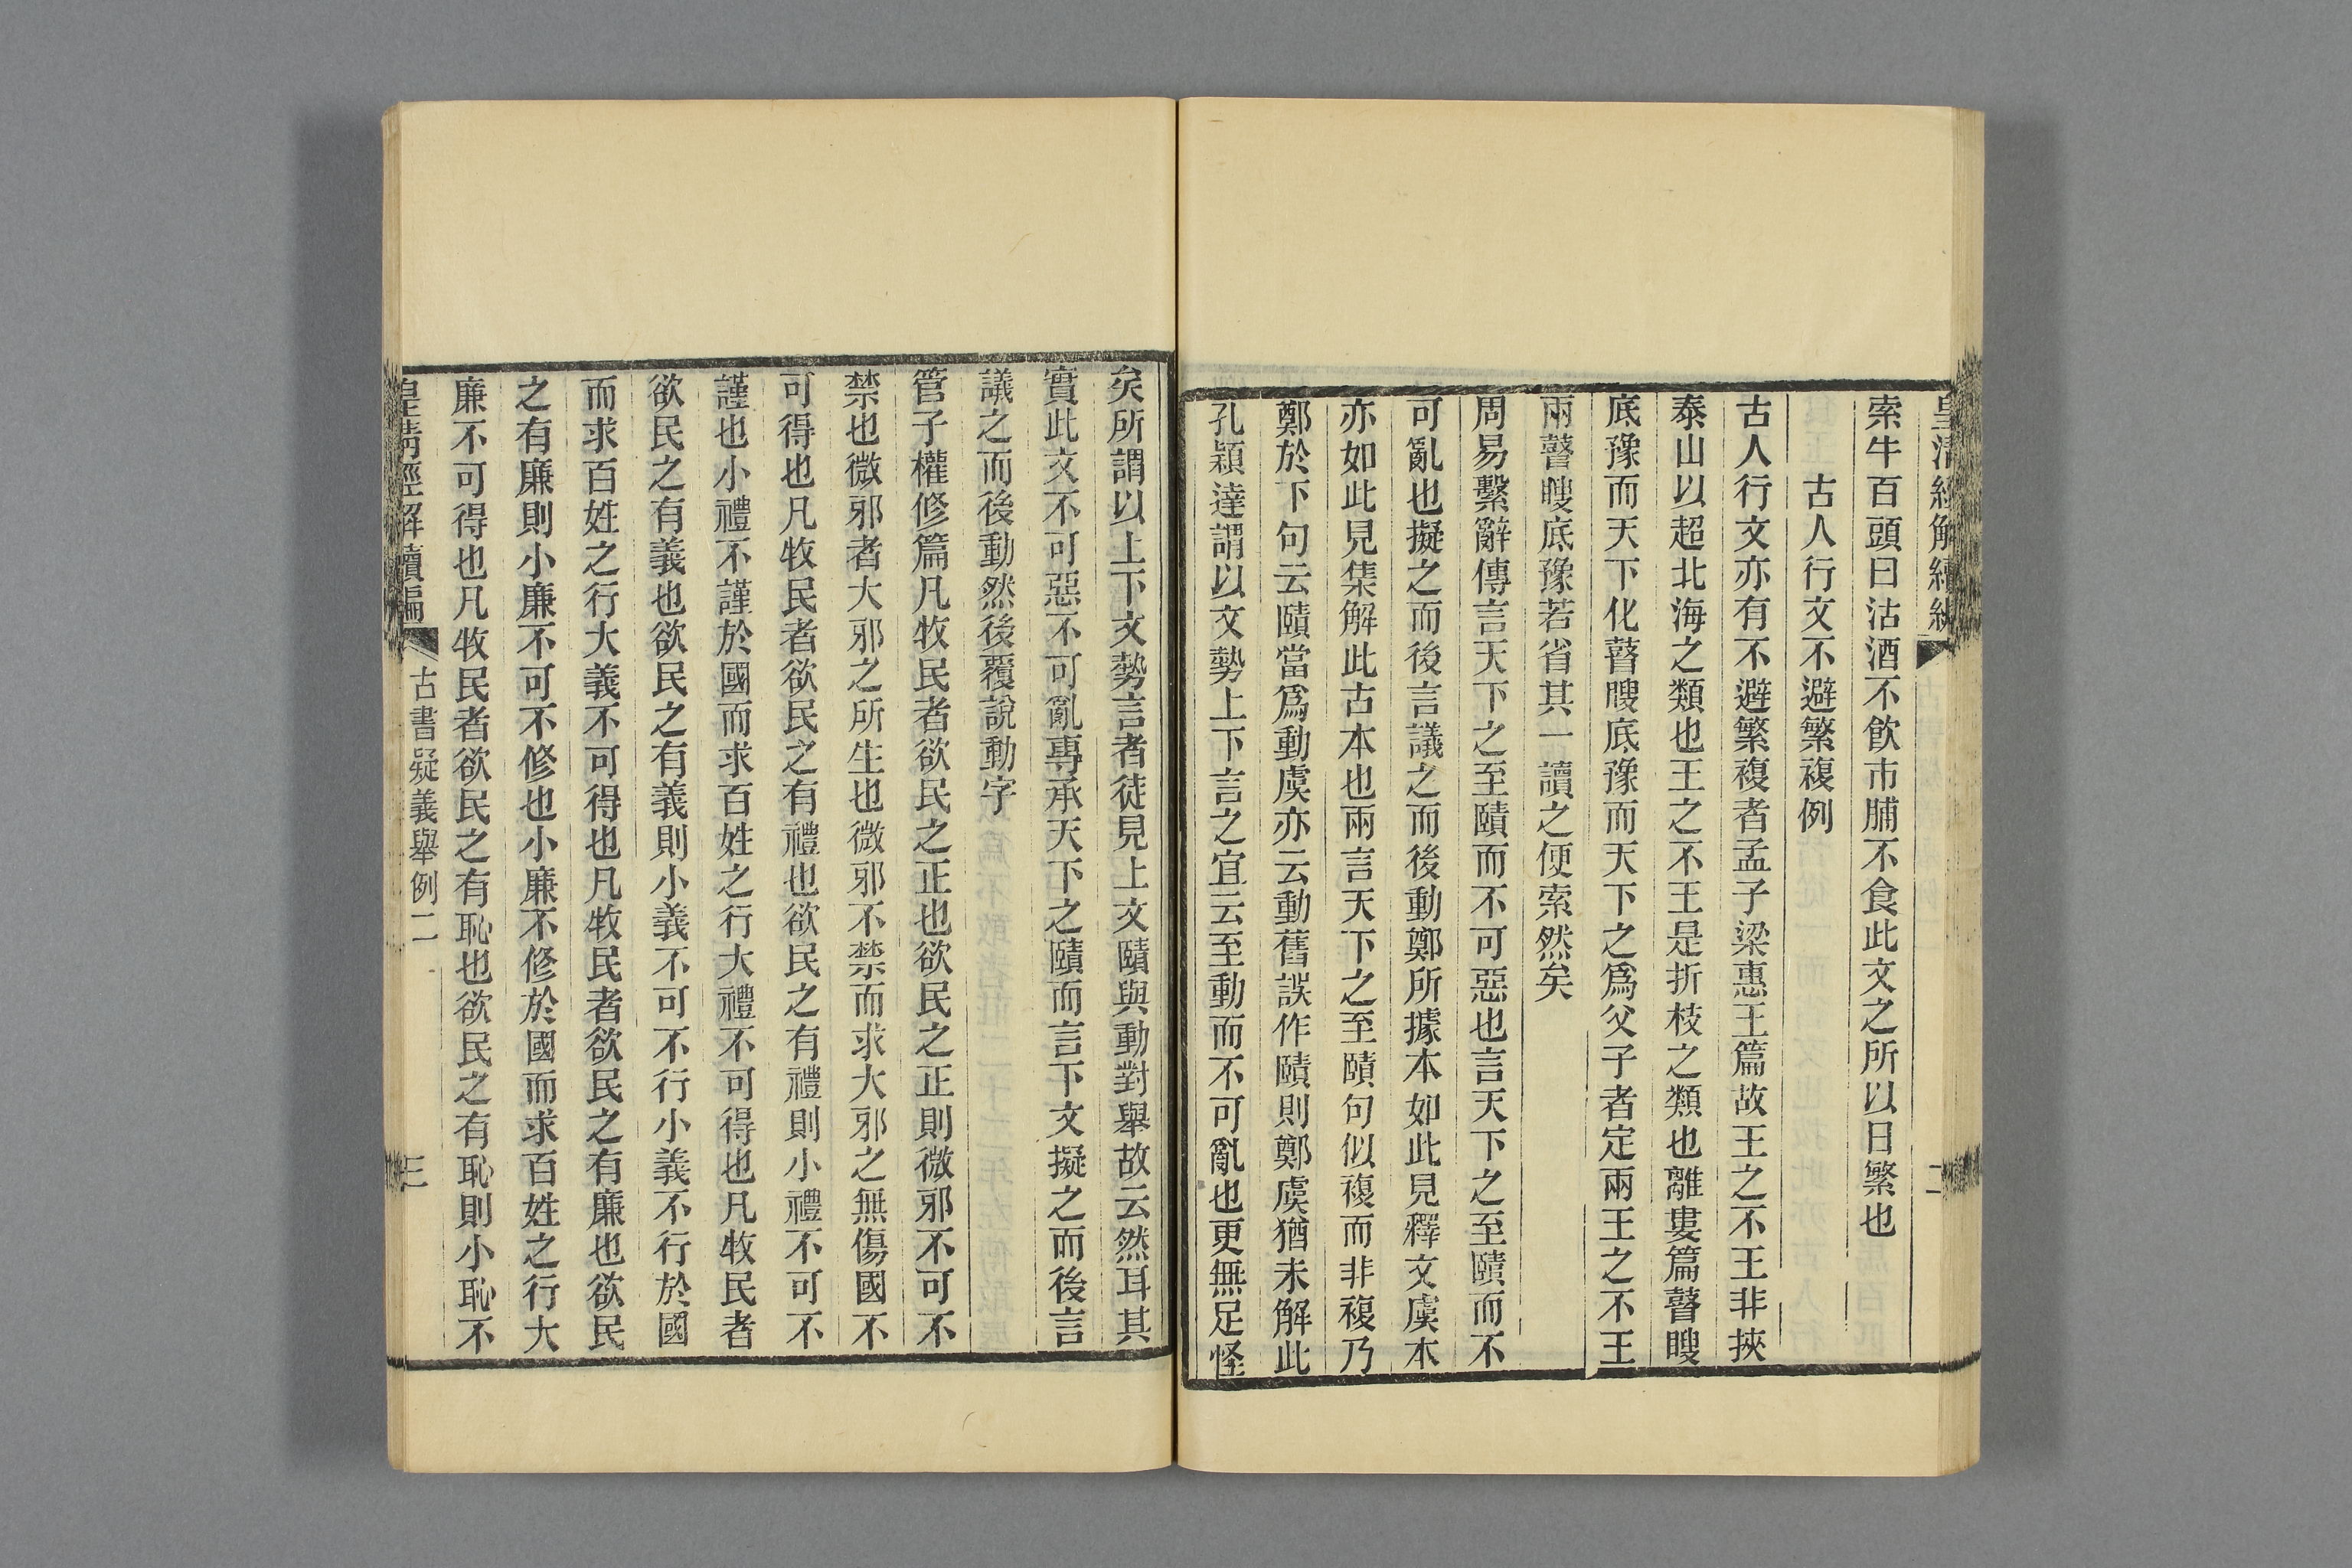 皇清經解續編
二
索牛百頭曰沽酒不飮市脯不食此文之所以日繁也
古人行文不避繁複例
古人行文亦有不避繁複者孟子梁惠王篇故王之不王非挾
泰山以超北海之類也王之不王是折枝之類也離婁篇瞽瞍
底豫而天下化瞽瞍底豫而天下之爲父子者定兩王之不王
兩瞽瞍底豫若省其一讀之便索然矣
周易繫辭傳言天下之至賾而不可惡也言天下之至賾而不
可亂也擬之而後言議之而後動鄭所據本如此見釋文虞本
亦如此見集解此古本也兩言天下之至賾句似複而非複乃
鄭於下句云賾當爲動虞亦云動舊誤作賾則鄭虞猶未解此
孔穎達謂以文勢上下言之宜云至動而不可亂也更無足怪
矣所謂以上下文勢言者徒見上文賾與動對舉故云然耳其
實此文不可惡不可亂專承天下之賾而言下文擬之而後言
議之而後動然後覆說動字
管子權修篇凡牧民者欲民之正也欲民之正則微邪不可不
禁也微邪者大邪之所生也微邪不禁而求大邪之無傷國不
可得也凡牧民者欲民之有禮也欲民之有禮則小禮不可不
謹也小禮不謹於國而求百姓之行大禮不可得也凡牧民者
欲民之有義也欲民之有義則小義不可不行小義不行於國
而求百姓之行大義不可得也凡牧民者欲民之有廉也欲民
之有廉則小廉不可不修也小廉不修於國而求百姓之行大
廉不可得也凡牧民者欲民之有恥也欲民之有恥則小恥不
皇清經解續編
古書疑義舉例二
三